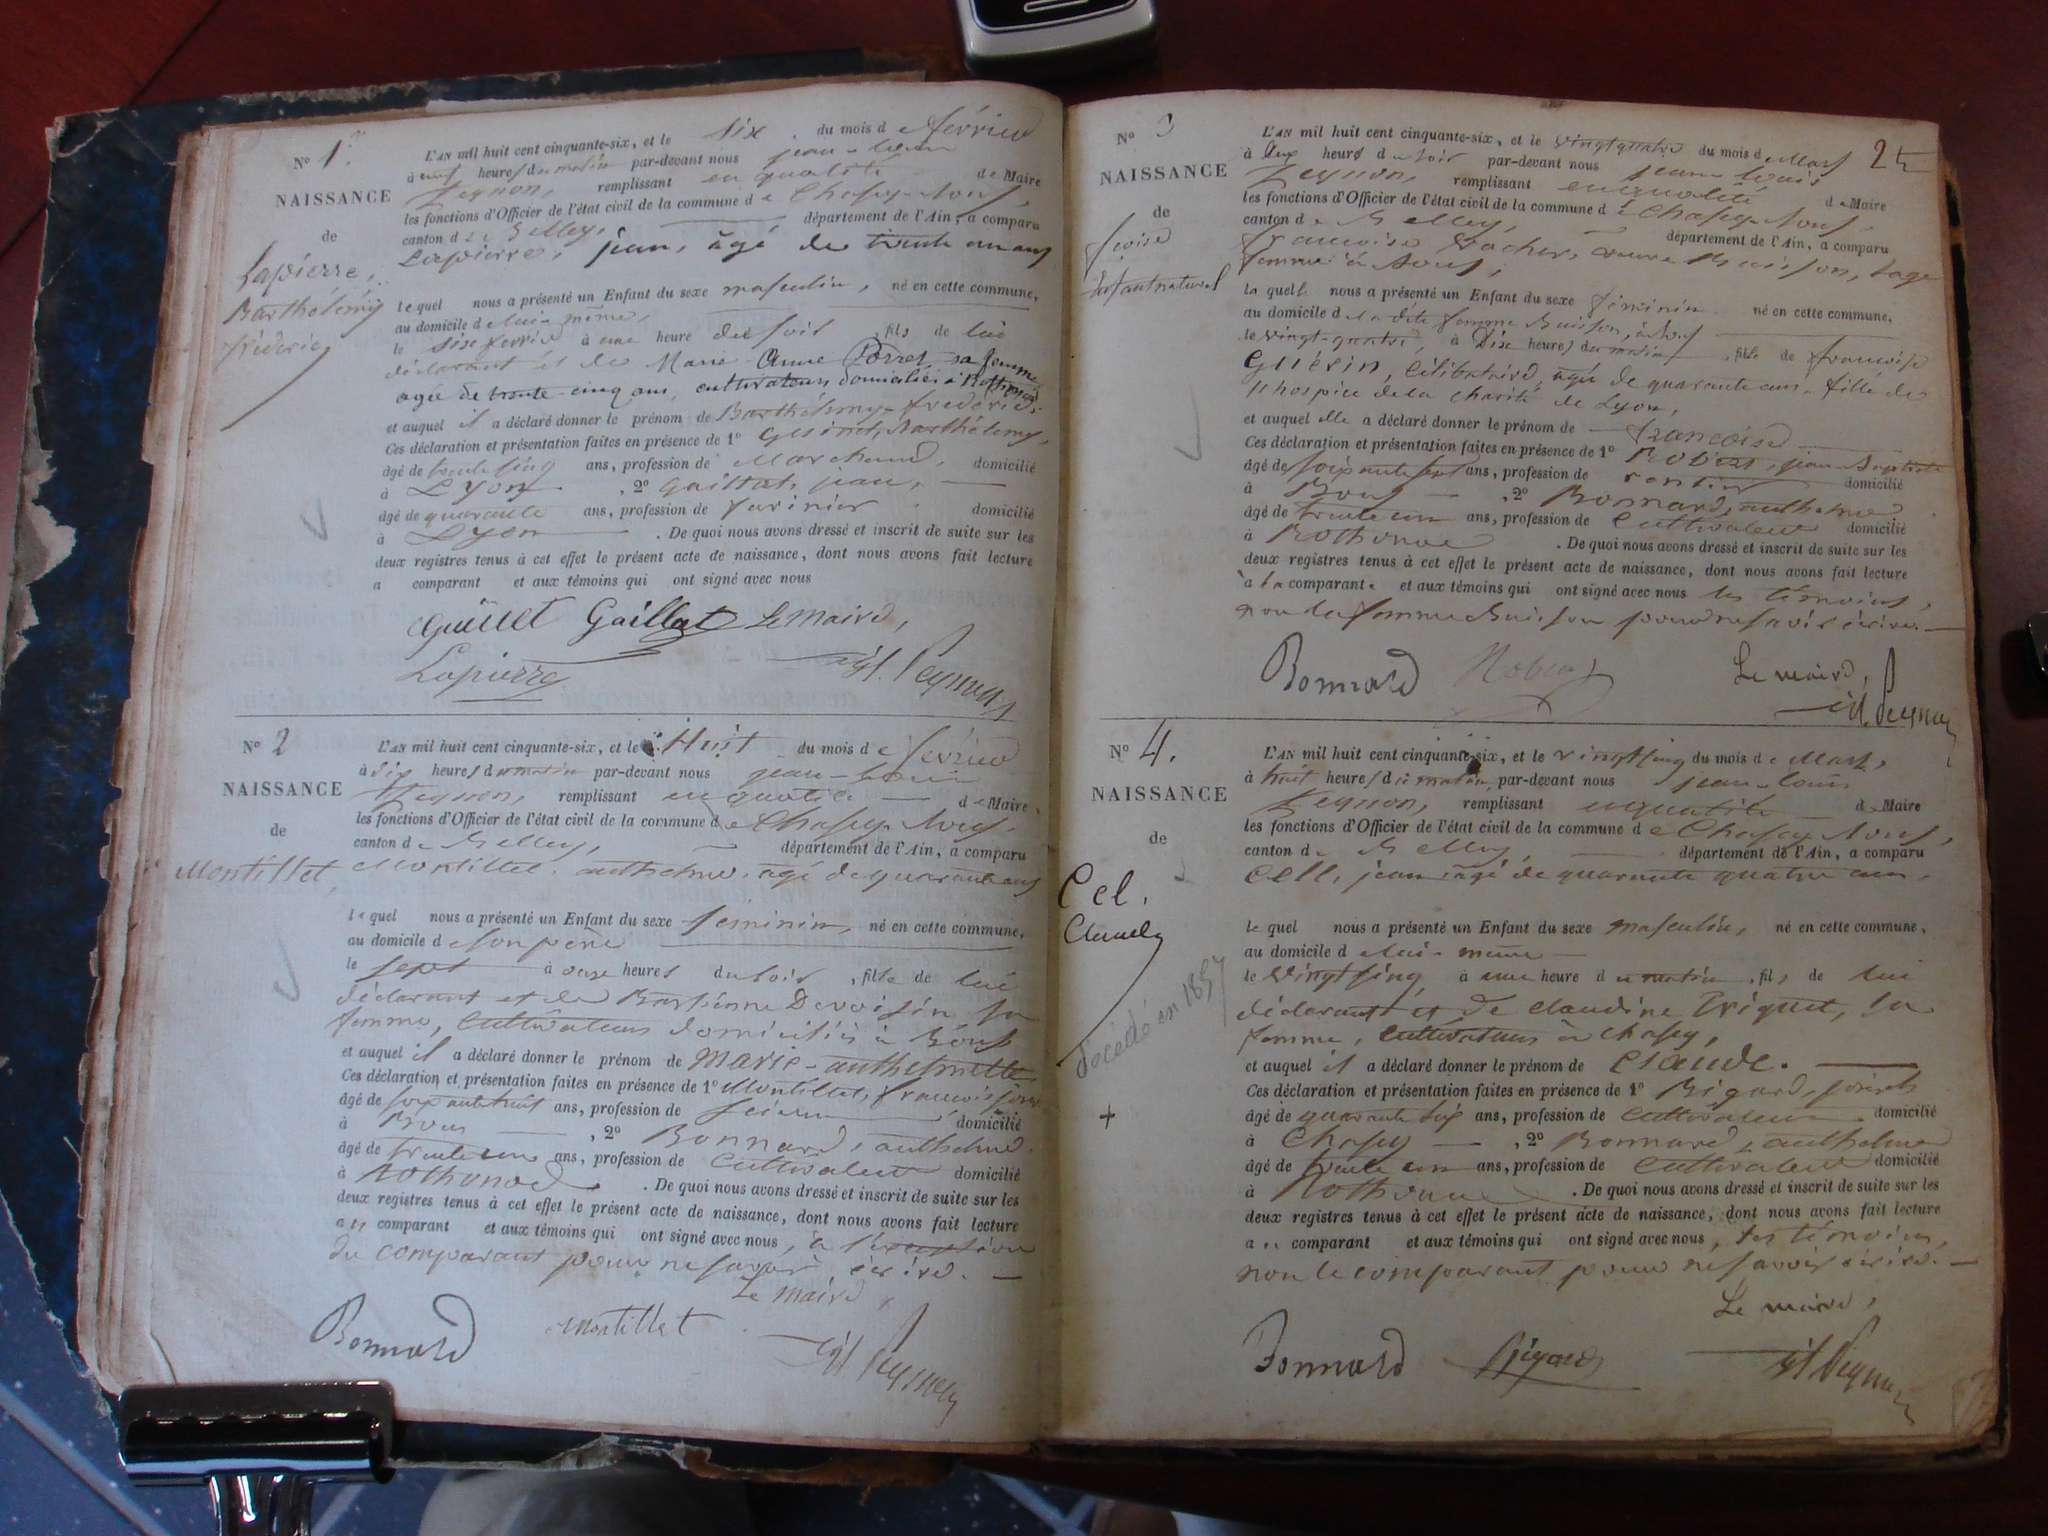 N° 1.
NAISSANCE
de
Lapierre,
Barthélemy
frédéric
L'AN mil huit cent cinquante-six, et le six du mois de février
à heures du matin par-devant nous jean-louis
Peynon, remplissant en qualité de Maire
les fonctions d'Officier de l'état civil de la commune de Chasey-Bons,
canton de Belley, département de l'Ain, a comparu
Lapierre, jean, âgé de trente un ans
lequel nous a présenté un Enfant du sexe masculin, né en cette commune,
au domicile de lui-même,
le six février à une heure du soir, fils de lui
déclarant et de Marie-Anne Perret, sa femme
agée de trente-cinq ans, cultivateurs domiciliés à Rothonod
et auquel il a déclaré donner le prénom de Barthélemy-frédéric.
Ces déclaration et présentation faites en présence de 1° Guinet, Barthélemy,
âgé de trente cinq ans, profession de Marchand, domicilié
à Lyon, 2° Gaillat, jean,
âgé de quarante ans, profession de farinier domicilié
à Lyon. De quoi nous avons dressé et inscrit de suite sur les
deux registres tenus à cet effet le présent acte de naissance, dont nous avons fait lecture
a comparant et aux témoins qui ont signé avec nous
Guinet Gaillat Le maire,
Lapierre
N° 2
NAISSANCE
de
Montillet,
L'AN mil huit cent cinquante-six, et le Huit du mois de février
à dix heures du matin par-devant nous jean-louis
Peynon, remplissant en qualité de Maire
les fonctions d'Officier de l'état civil de la commune de Chasey-Bons,
canton de Belley, département de l'Ain, a comparu
Montillet, anthelme, agé de quarante ans
lequel nous a présenté un Enfant du sexe féminin, né en cette commune,
au domicile de son père
le sept à onze heures du soir, fille de lui
déclarant et de Bastienne Devoisin sa
femme, cultivateurs domiciliés à Bons
et auquel il a déclaré donner le prénom de Marie-anthelmette
Ces déclaration et présentation faites en présence de 1° Montillet, françois
âgé de soixante huit ans, profession de domicilié
à Bons, 2° Bonnard, anthelme,
âgé de trente un ans, profession de Cultivateur domicilié
à Rothonod. De quoi nous avons dressé et inscrit de suite sur les
deux registres tenus à cet effet le présent acte de naissance, dont nous avons fait lecture
au comparant et aux témoins qui ont signé avec nous, à l'exception
du comparant pour ne savoir écrire.
Le maire,
Bonnard Montillet
N° 3
NAISSANCE
de
Enfant naturel
2
L'AN mil huit cent cinquante-six, et le vingt quatre du mois de Mars
à deux heures du soir par-devant nous jean-louis
Peynon, remplissant en qualité de Maire
les fonctions d'Officier de l'état civil de la commune de Chasey-Bons,
canton de Belley, département de l'Ain, a comparu
françoise Buisson, sage
femme à Bons,
laquelle nous a présenté un Enfant du sexe féminin né en cette commune,
au domicile de la dite femme Buisson, à Bons
le vingt-quatre, à Dix heures du matin, fille de françoise
Guérin, célibataire, agée de quarante ans, fille de
l'hospice de la charité de Lyon,
et auquel elle a déclaré donner le prénom de françoise
Ces déclaration et présentation faites en présence de 1° Robert, jean-Baptiste
âgé de soixante sept ans, profession de rentier domicilié
à Bons, 2° Bonnard, anthelme
âgé de trente un ans, profession de Cultivateur domicilié
à Rothonod. De quoi nous avons dressé et inscrit de suite sur les
deux registres tenus à cet effet le présent acte de naissance, dont nous avons fait lecture
à la comparante et aux témoins qui ont signé avec nous les témoins,
non la femme Buisson pour ne savoir écrire.
Bonnard Le maire,
N° 4.
NAISSANCE
de
Cel,
Claude
décédé en 1857
+
L'AN mil huit cent cinquante-six, et le vingt cinq du mois de Mars,
à huit heures du matin, par-devant nous jean-louis
Peynon, remplissant en qualité de Maire
les fonctions d'Officier de l'état civil de la commune de Chasey-Bons,
canton de Belley, département de l'Ain, a comparu
Cell, jean, âgé de quarante quatre ans,
lequel nous a présenté un Enfant du sexe masculin, né en cette commune,
au domicile de lui-même
le vingt cinq, à une heure du matin, fils de lui
déclarant et de Claudine Triquet, sa
femme, cultivateurs à Chasey,
et auquel il a déclaré donner le prénom de Claude.
Ces déclaration et présentation faites en présence de 1° Bigard, joseph
âgé de quarante six ans, profession de Cultivateur domicilié
à Chasey, 2° Bonnard, anthelme
âgé de trente un ans, profession de Cultivateur domicilié
à Rothonod. De quoi nous avons dressé et inscrit de suite sur les
deux registres tenus à cet effet le présent acte de naissance, dont nous avons fait lecture
au comparant et aux témoins qui ont signé avec nous, les témoins,
non le comparant pour ne savoir écrire.
Le maire,
Bonnard Bigard